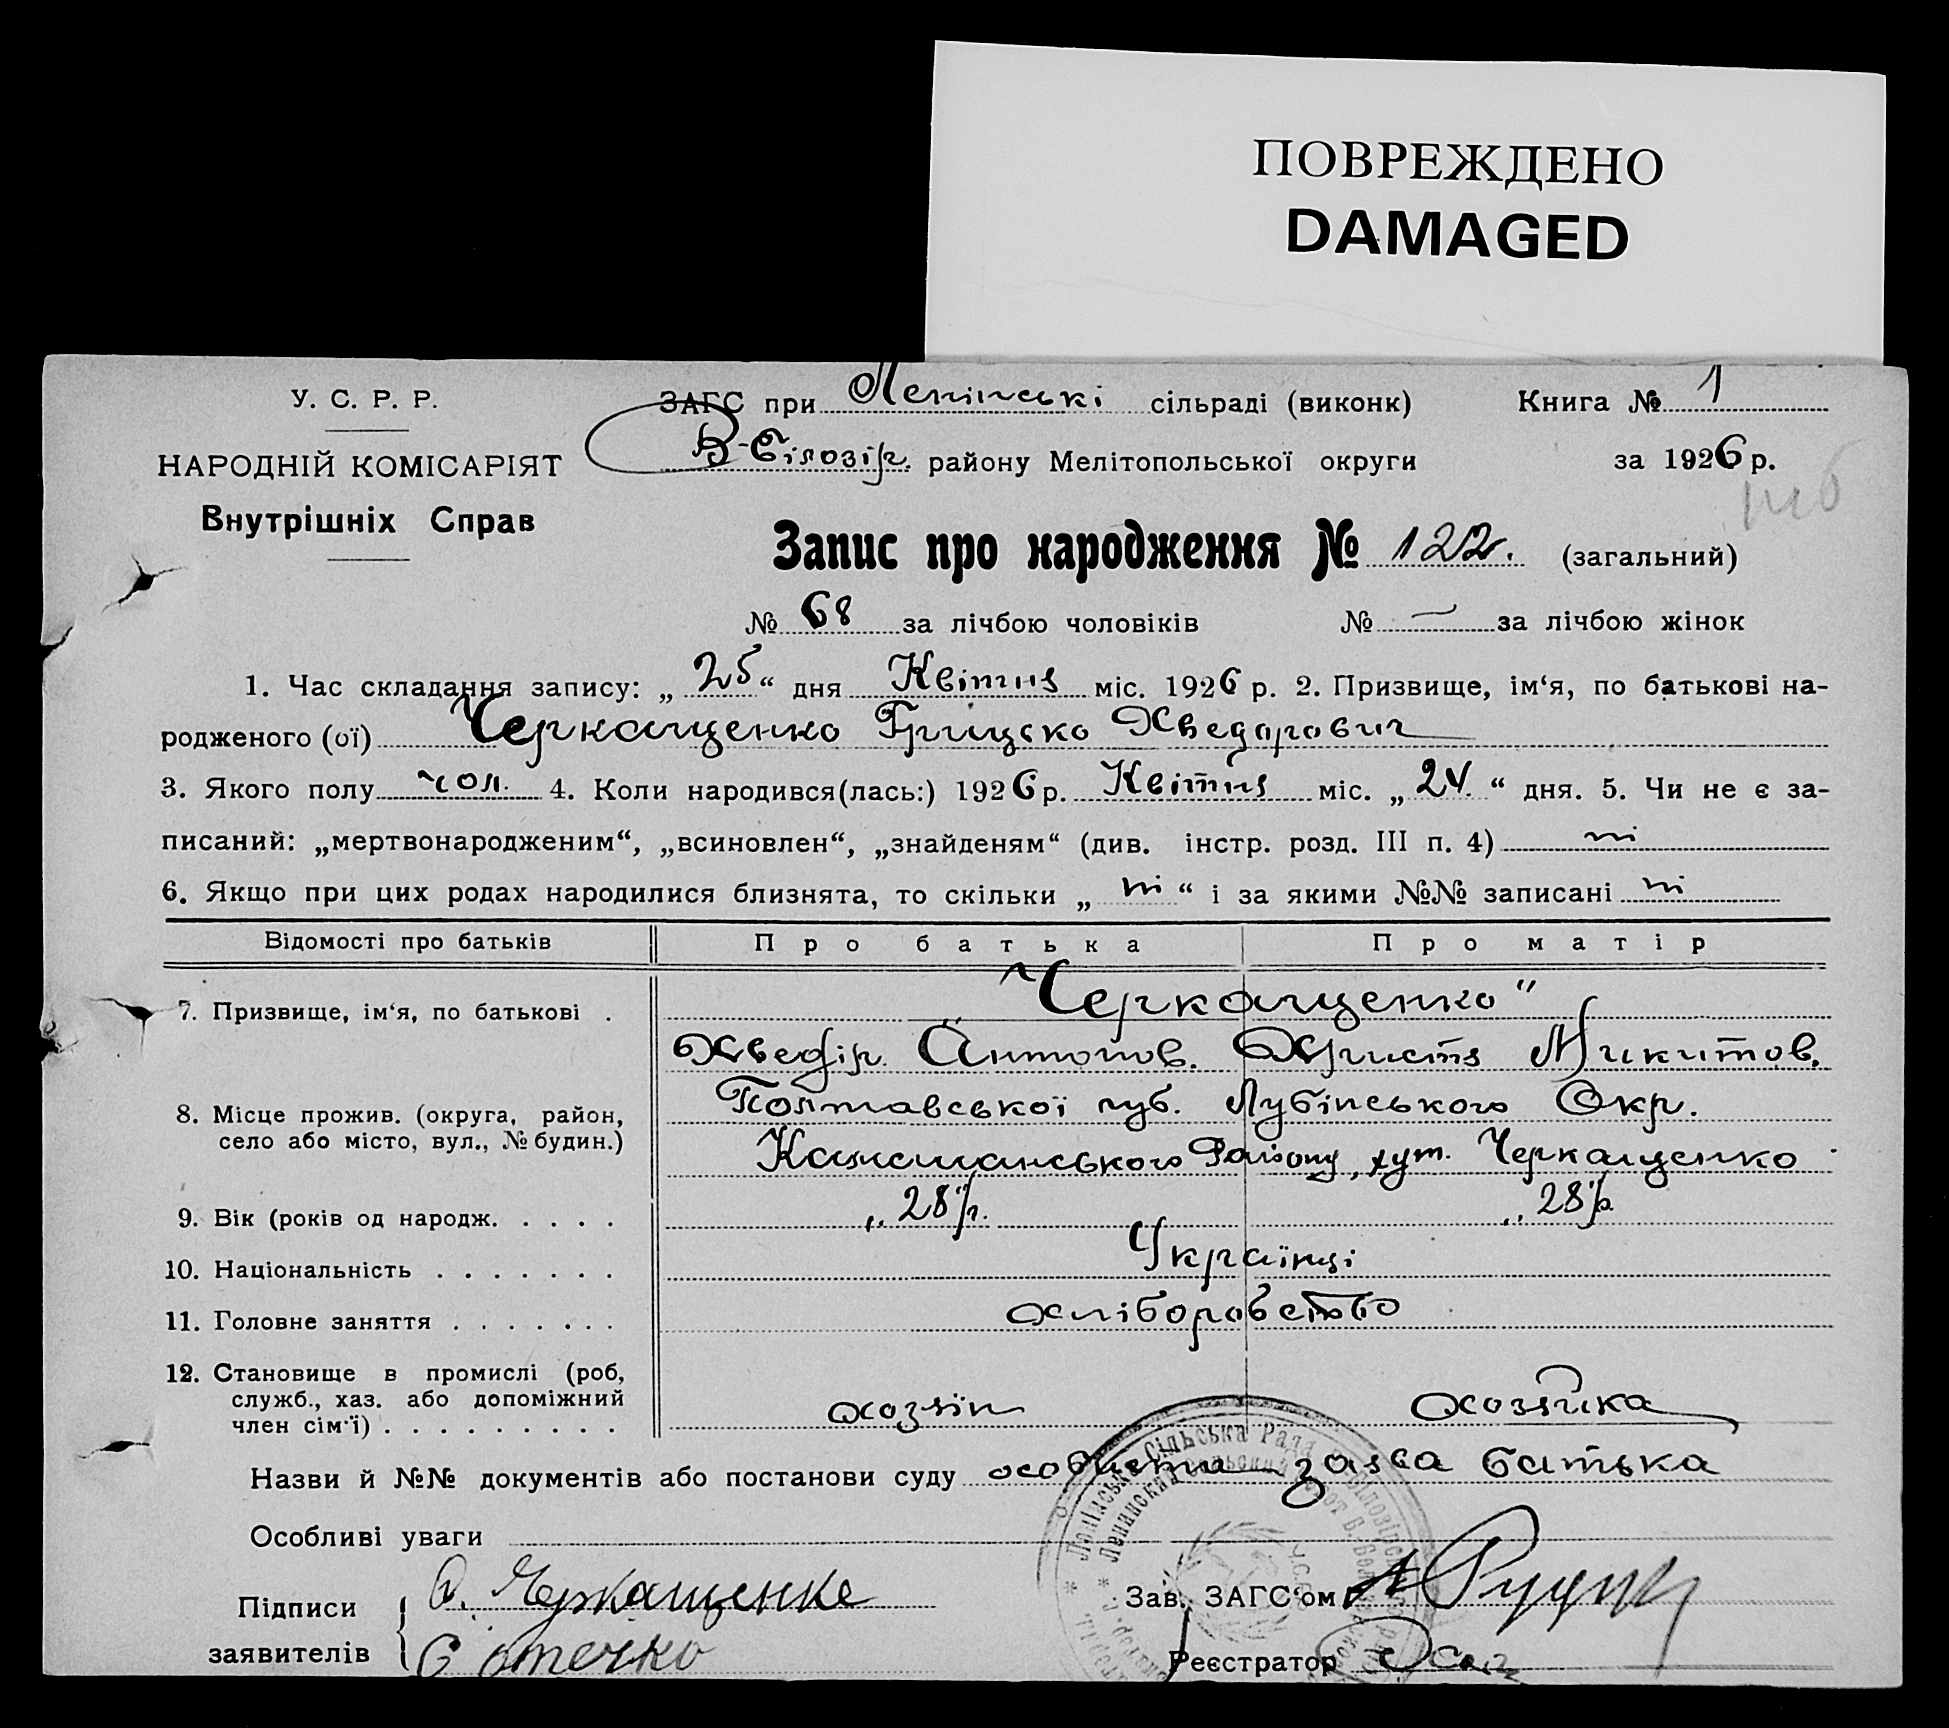 ПОВРЕЖДЕНО
DAMAGED
У. С. Р. Р.
НАРОДНІЙ КОМІСАРІЯТ
Внутрішніх Справ
ЗАГС при Ленінські сільраді (виконк)
В-Білозір. району Мелітопольської округи
Книга № 1
за 1926 р.
Запис про народження № 122. (загальний)
№ 68 за лічбою чоловіків № — за лічбою жінок
1. Час складання запису: „25“ дня Квітня міс. 1926 р. 2. Призвище, ім‘я, по батькові на-
родженого (ої) Черкащенко Грицько Хведорович
3. Якого полу чол. 4. Коли народився(лась:) 1926 р. Квітня міс. „24.“ дня. 5. Чи не є за-
писаний: „мертвонародженим“, „всиновлен“, „знайденям“ (див. інстр. розд. III п. 4) ні
6. Якщо при цих родах народилися близнята, то скільки „ні“ і за якими №№ записані ні
Відомості про батьків Про батька Про матір
7. Призвище, ім‘я, по батькові .
Черкащенко"
Хведір. Антонов. Христя Микитов.
8. Місце прожив. (округа, район,
село або місто, вул., № будин.)
Полтавської губ. Лубінського Окр.
Району, хут. Черкащенко
9. Вік (років од народж. . . . . „28 р. „28 р
10. Національність . . . . . . . Українці
11. Головне заняття . . . . . . . хліборобство
12. Становище в промислі (роб,
служб., хаз. або допоміжний
член сім‘ї) . . . . . . . . . хозяїн хозяйка
Назви й №№ документів або постанови суду особиста заява батька
Особливі уваги
Підписи
заявителів
Черкащенко
Зав. ЗАГС‘ом
Реєстратор
Ленінська Сільська Рада